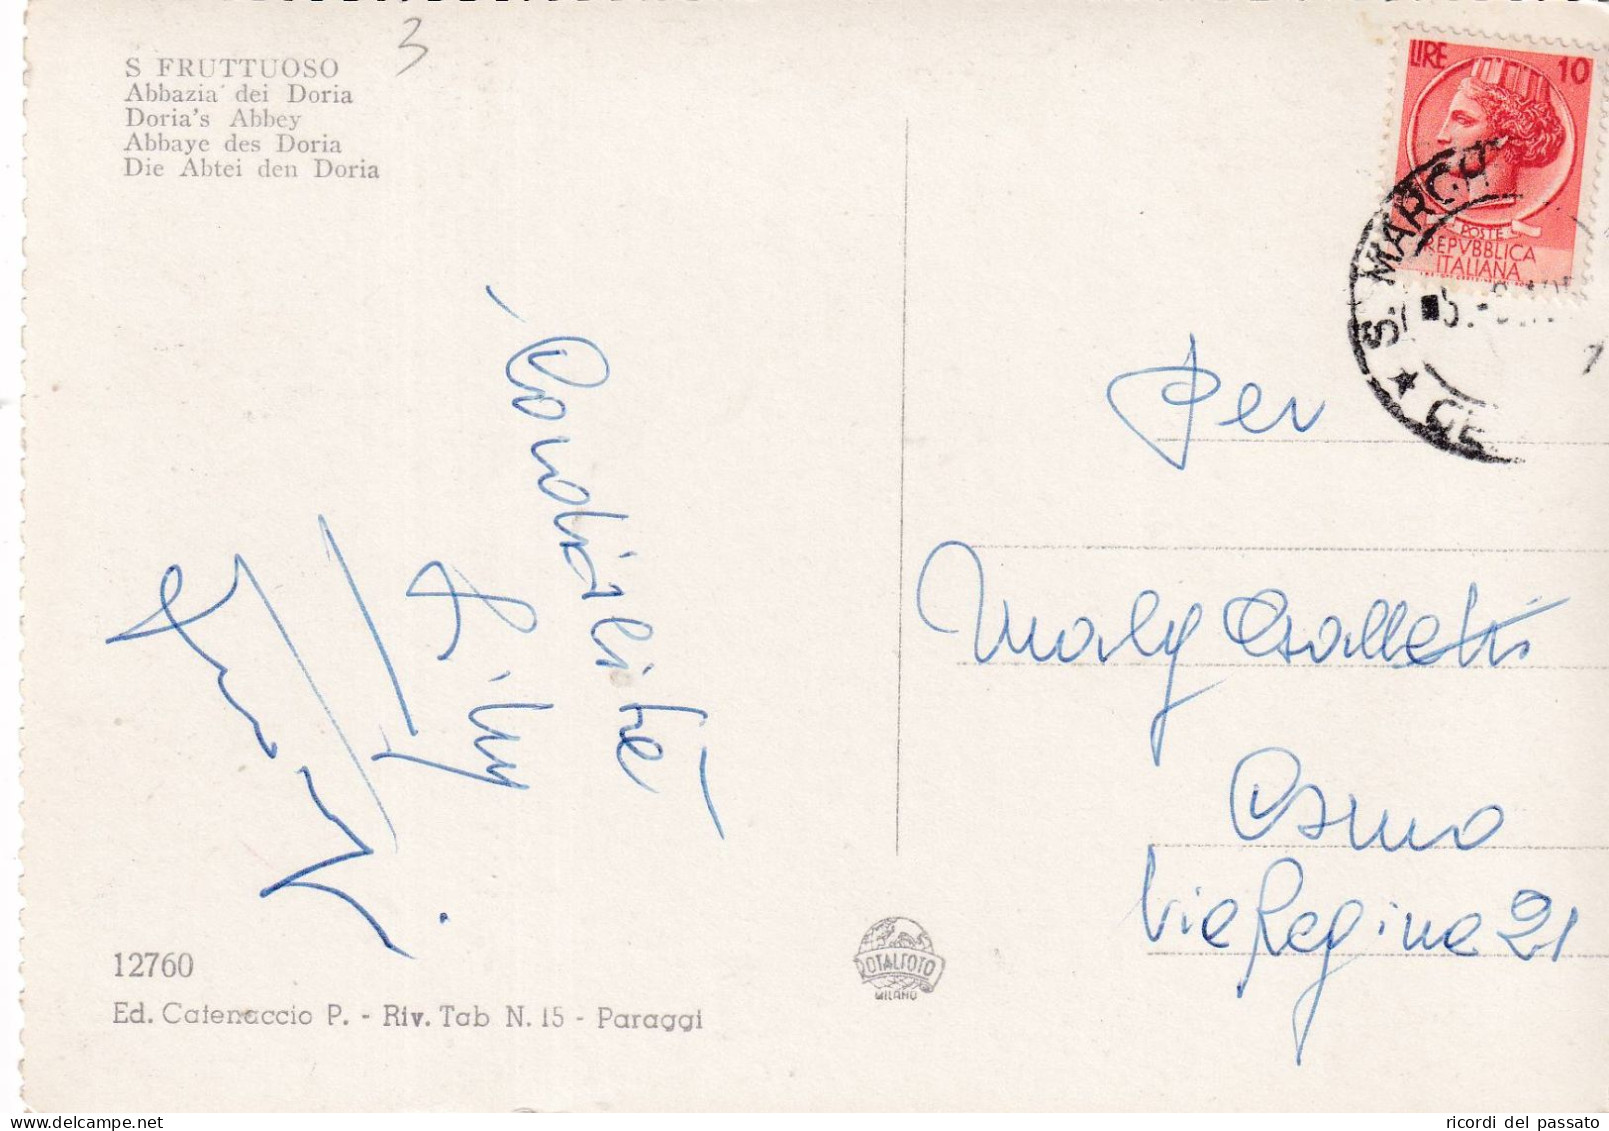 3
S FRUTTUOSO
Abbazia dei Doria
Doria's Abbey
Abbaye des Doria
Die Abtei den Doria
LIRE 10
POSTE
REPVBBLICA
ITALIANA
S. MARGH
Cordialità
per
Maly Galletti
Osmo
Via Regina 21
12760
Ed. Catenaccio P. - Riv. Tab N. 15 - Paraggi
ROTALFOTO
MILANO
ricordi del passato